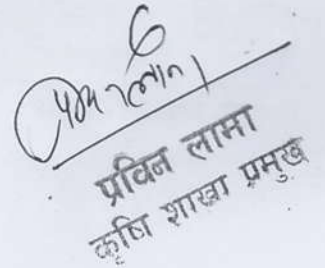 प्रविन लामा
कृषि शाखा प्रमुख